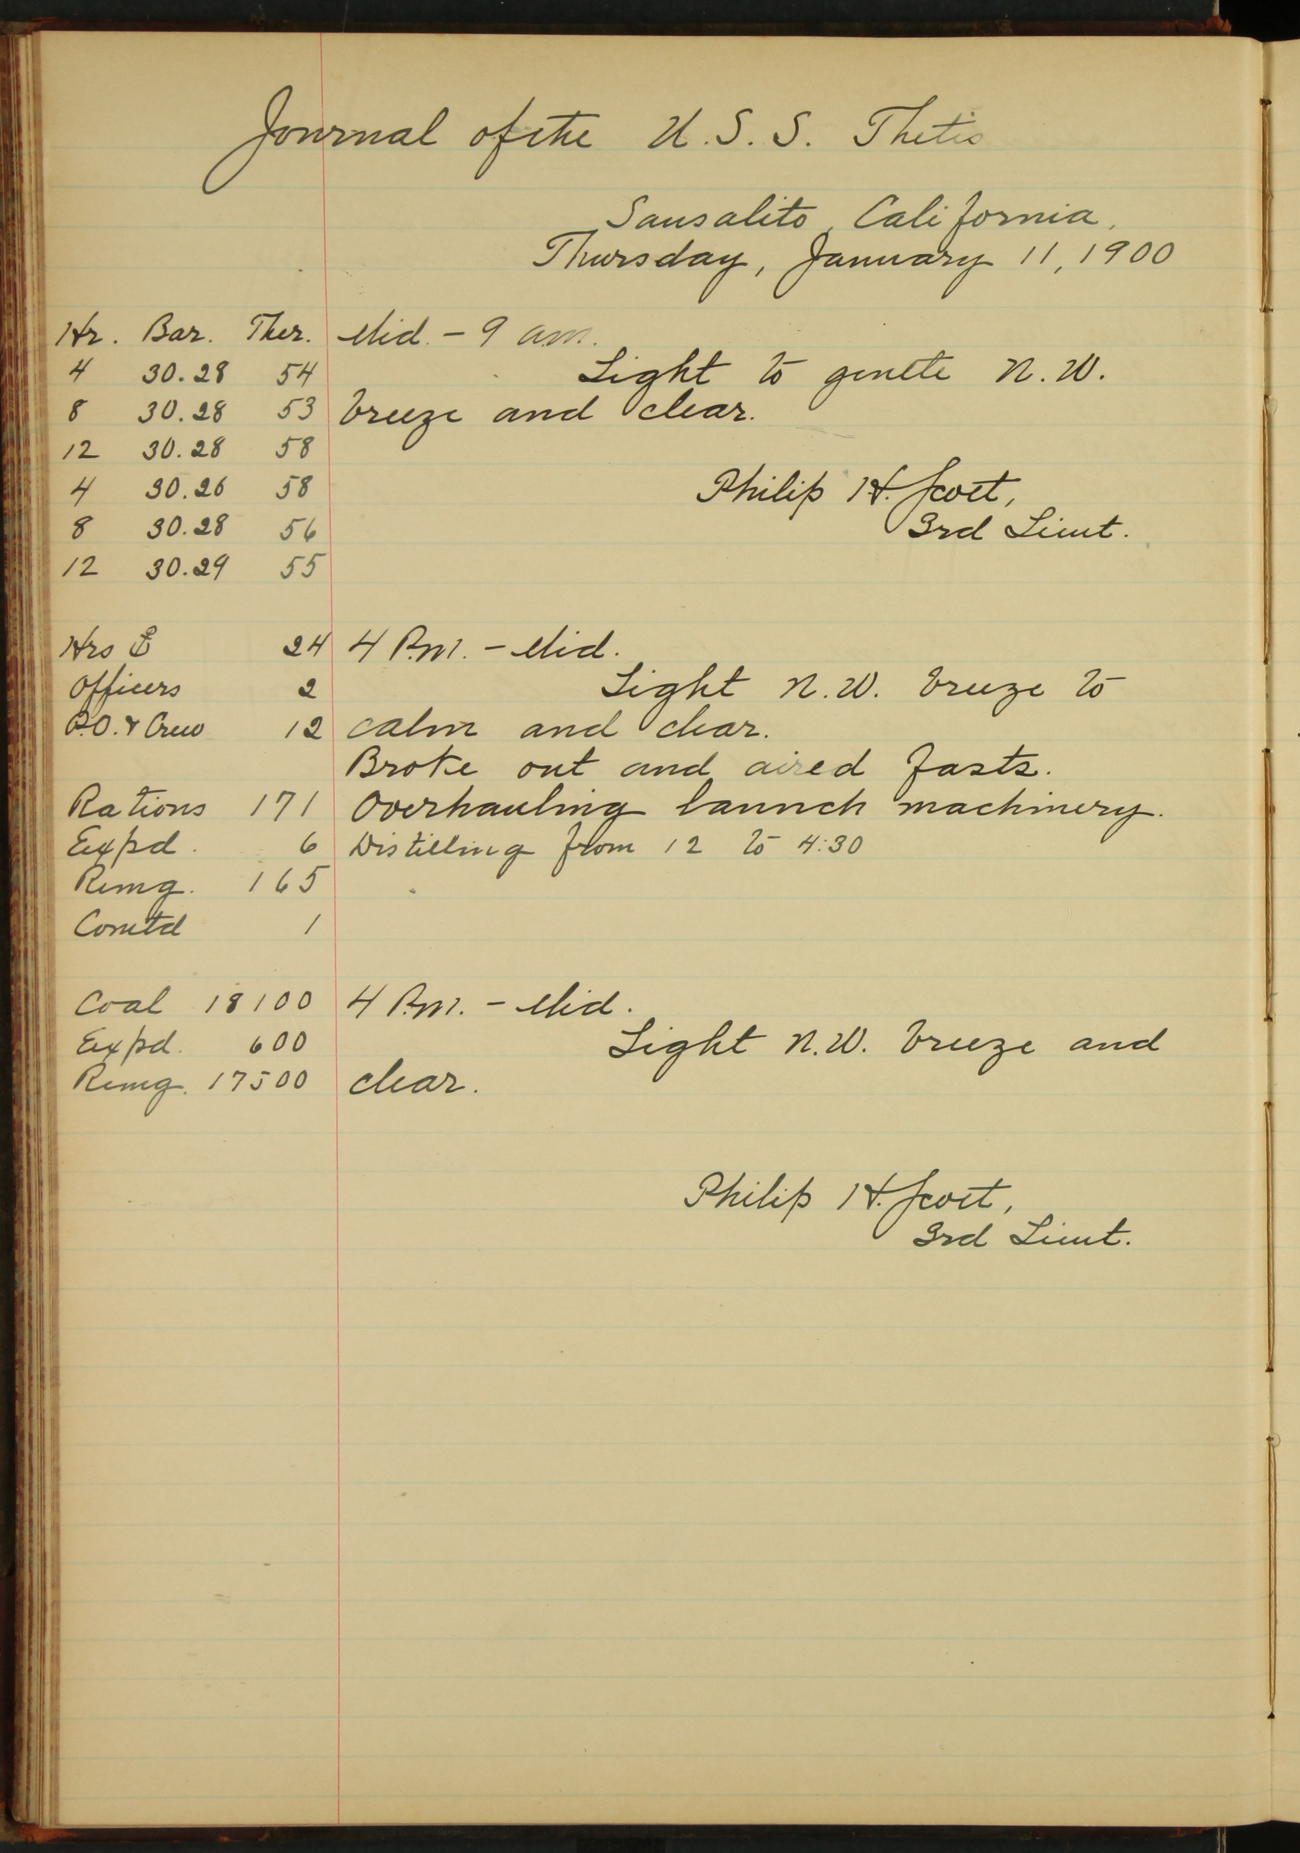 Journal of the U.S.S. Thetis
Sausalito, California.
Thursday, January 11, 1900
Hr. Bar. Ther. Mid. - 9 am.
4 30.28 54 Light to gentle N.W.
8 30.28 53 breeze and clear.
12 30.28 58
4 30.26 58 Philip H. Scott,
8 30.28 56 3rd Lieut.
12 30.29 55
Hrs ⚓ 24 4 P.m. - Mid.
Officers 2 Light N.W. breeze to
P.O. & Crew 12 calm and clear.
Broke out and aired fasts.
Rations 171 Overhauling launch machinery.
Expd. 6 Distilling from 12 to 4:30
Remg. 165
Comtd 1
Coal 18100 4 P.m. - Mid.
Expd. 600 Light N.W. breeze and
Remg. 17500 clear.
Philip H. Scott,
3rd Lieut.